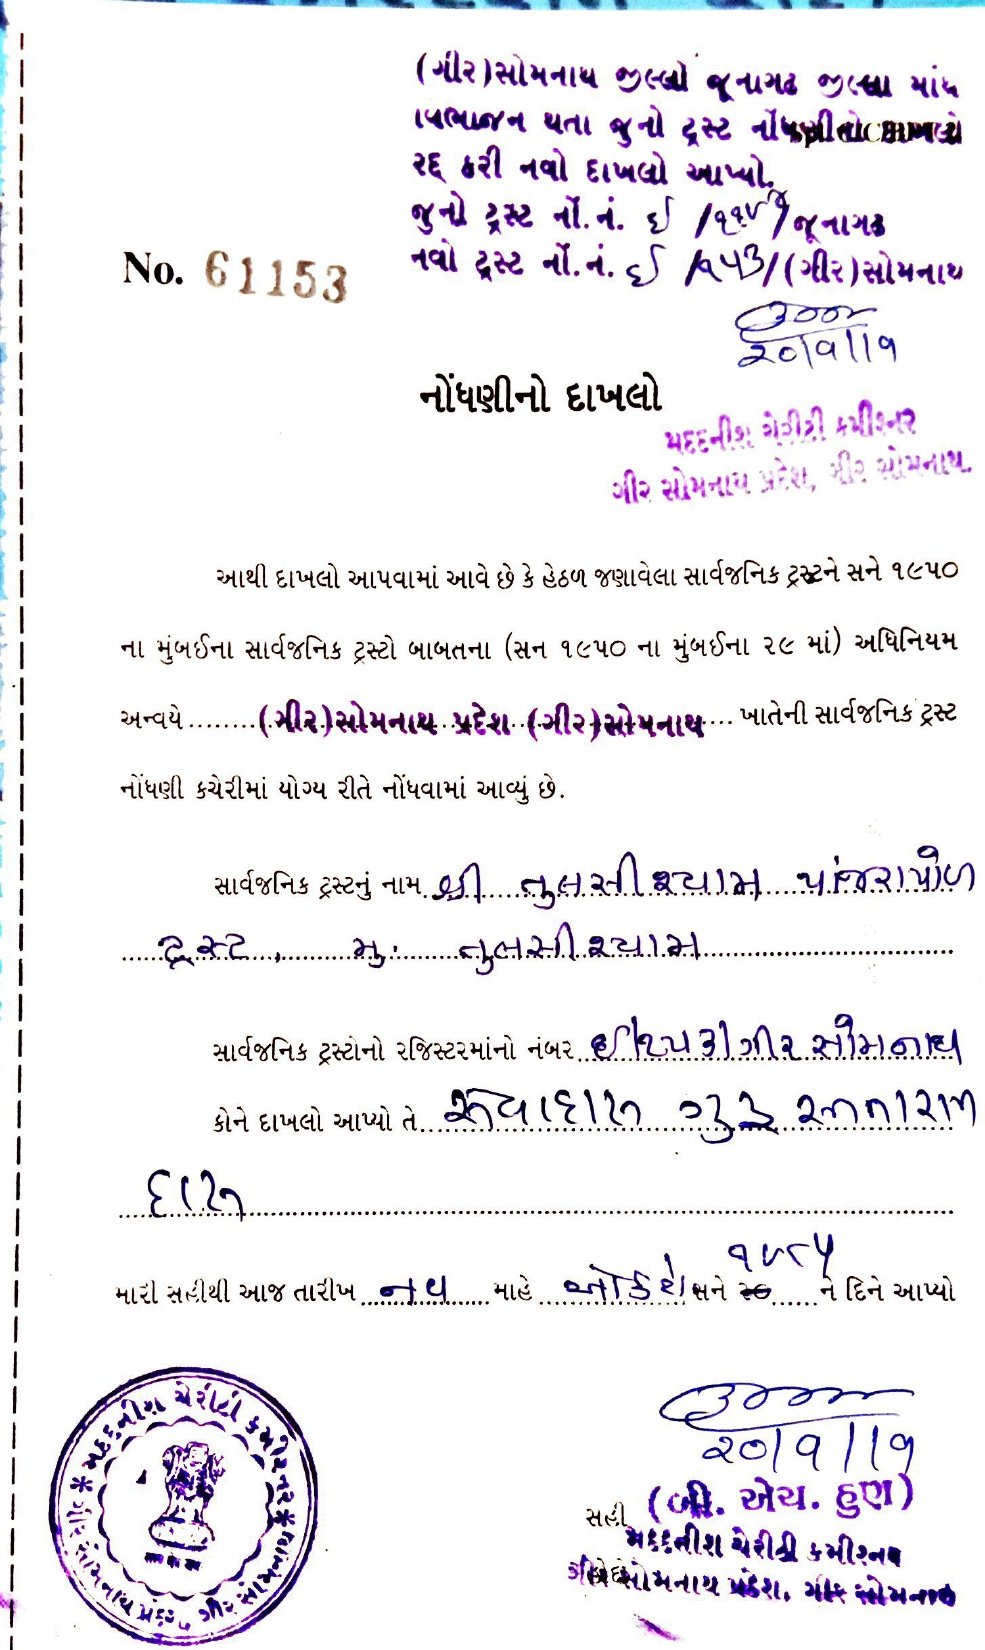 (ગીર)સોમનાથ જીલ્લો જૂનાગઢ જીલ્લા માંથ
વિભાજન થતા જુનો ટ્રસ્ટ નોંધણીનો દાખલો
રદ્દ કરી નવો દાખલો આપ્યો.
જુનો ટ્રસ્ટ ર્નો.નં. ઈ / જૂનાગઢ
નવો ટ્રસ્ટ ર્નો.નં. ઈ /૨૫૩/(ગીર)સોમનાથ
No. 61153
નોંધણીનો દાખલો
મદદનીશ ચેરીટી કમીશ્નર
ગીર સોમનાથ પ્રદેશ, ગીર સોમનાથ.
આથી દાખલો આપવામાં આવે છે કે હેઠળ જણાવેલા સાર્વજનિક ટ્રસ્ટને સને ૧૯૫૦
ના મુંબઈના સાર્વજનિક ટ્રસ્ટો બાબતના (સન ૧૯૫૦ ના મુંબઈના ૨૯ માં) અધિનિયમ
અન્વયે (ગીર)સોમનાથ પ્રદેશ (ગીર)સોમનાથ ખાતેની સાર્વજનિક ટ્રસ્ટ
નોંધણી કચેરીમાં યોગ્ય રીતે નોંધવામાં આવ્યું છે.
સાર્વજનિક ટ્રસ્ટનું નામ શ્રી તુલસીશ્યામ પાંજરાપોળ
ટ્રસ્ટ, મુ. તુલસીશ્યામ
સાર્વજનિક ટ્રસ્ટોનો રજિસ્ટરમાંનો નંબર ઈ/૨૫૩/ગીર સોમનાથ
કોને દાખલો આપ્યો તે સેવાદાસ ગુરૂ
દાસ
મારી સહીથી આજ તારીખ નવ માહે ઓકટો સને ને દિને આપ્યો
મદદનીશ ચેરીટી કમીશ્નર
ગીર સોમનાથ પ્રદેશ, ગીર સોમનાથ
સહી (બી. એચ. હુણ)
મદદનીશ ચેરીટી કમીશ્નર
ગીર સોમનાથ પ્રદેશ, ગીર સોમનાથ